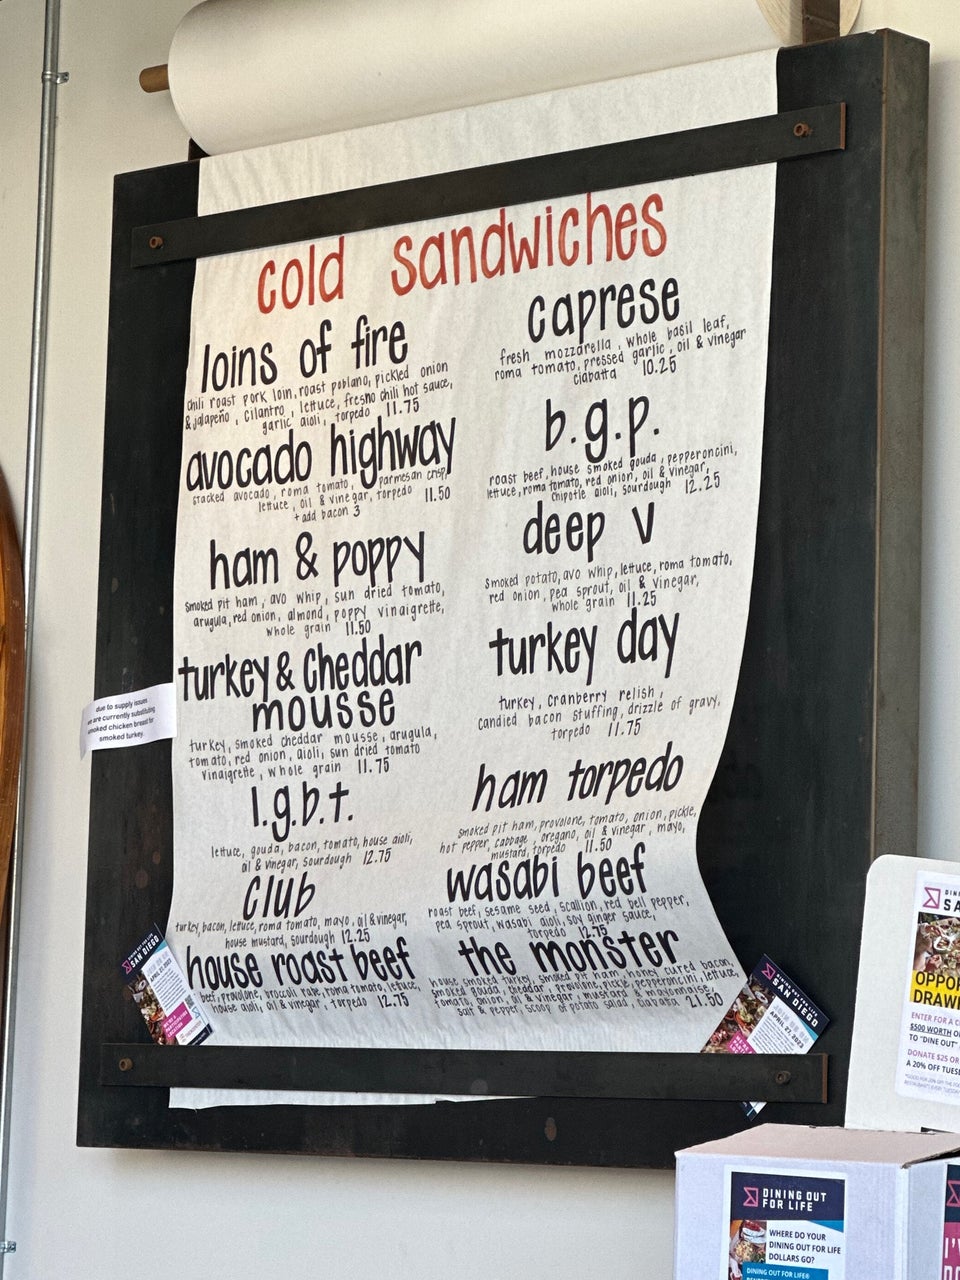 cold sandwiches
loins of fire
chili roast pork loin, roast poblano, pickled onion
& jalapeño, cilantro, lettuce, fresno chili hot sauce,
garlic aioli, torpedo 11.75
avocado highway
stacked avocado, roma tomato, parmesan crisp
lettuce, oil & vinegar, torpedo 11.50
+ add bacon 3
ham & poppy
smoked pit ham, avo whip, sun dried tomato,
arugula, red onion, almond, poppy vinaigrette,
whole grain 11.50
turkey & cheddar
mousse
turkey, smoked cheddar mousse, arugula,
tomato, red onion, aioli, sun dried tomato
vinaigrette, whole grain 11.75
l.g.b.t.
lettuce, gouda, bacon, tomato, house aioli,
oil & vinegar, sourdough 12.75
club
turkey, bacon, lettuce, roma tomato, mayo, oil & vinegar,
house mustard, sourdough 12.25
house roast beef
beef, provolone, broccoli rabe, roma tomato, lettuce,
house aioli, oil & vinegar, torpedo 12.75
caprese
fresh mozzarella, whole basil leaf,
roma tomato, pressed garlic, oil & vinegar
ciabatta 10.25
b.g.p.
roast beef, house smoked gouda, pepperoncini,
lettuce, roma tomato, red onion, oil & vinegar,
chipotle aioli, sourdough 12.25
deep v
smoked potato, avo whip, lettuce, roma tomato,
red onion, pea sprout, oil & vinegar,
whole grain 11.25
turkey day
turkey, cranberry relish,
candied bacon stuffing, drizzle of gravy,
torpedo 11.75
ham torpedo
smoked pit ham, provolone, tomato, onion, pickle,
hot pepper, cabbage, oregano, oil & vinegar, mayo,
mustard, torpedo 11.50
wasabi beef
roast beef, sesame seed, scallion, red bell pepper,
pea sprout, wasabi aioli, soy ginger sauce,
torpedo 12.75
the monster
house smoked turkey, smoked pit ham, honey cured bacon,
smoked gouda, cheddar, provolone, pickle, pepperoncini, lettuce,
tomato, onion, oil & vinegar, mustard & mayonnaise,
salt & pepper, scoop of potato salad, ciabatta 21.50
due to supply issues
we are currently substituting
smoked chicken breast for
smoked turkey.
DINING OUT FOR LIFE
SAN DIEGO
APRIL 27, 2023
DINING OUT FOR LIFE
SAN DIEGO
APRIL 27, 2023
ENTER FOR A
$500 WORTH
TO "DINE OUT"
DONATE $25 OR
A 20% OFF
DINING OUT
FOR LIFE
WHERE DO YOUR
DINING OUT FOR LIFE
DOLLARS GO?
DINING OUT FOR LIFE®